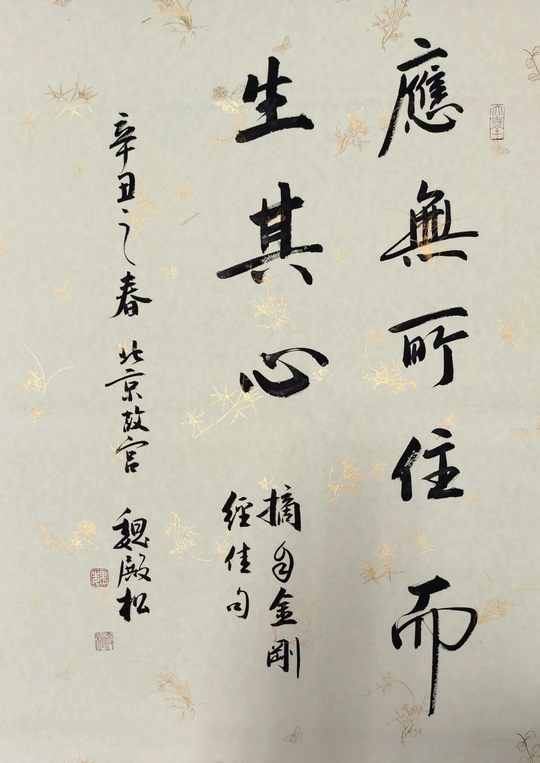 應無所住而
生其心
摘自金剛
經佳句
辛丑之春 北京故宮 魏殿松